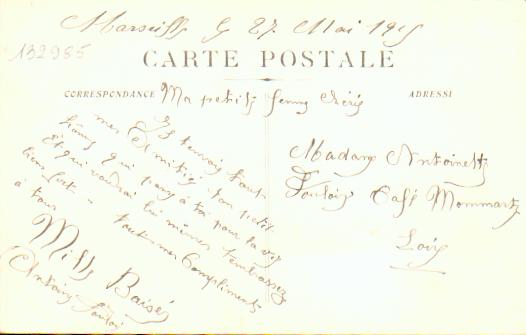 Marseille le 27 Mai 1915
132985
CARTE POSTALE
CORRESPONDANCE
ADRESSE
Ma petite femme chérie
Je t'envoie tout
mes Amitiés ton petit
homme qui pense à toi pour la vie
Et qui voudrai lui même t'embrassez
bien fort tout mes Compliments
à tous
Mille Baisés
Antoine
Madame Antoinette
Café
Loire